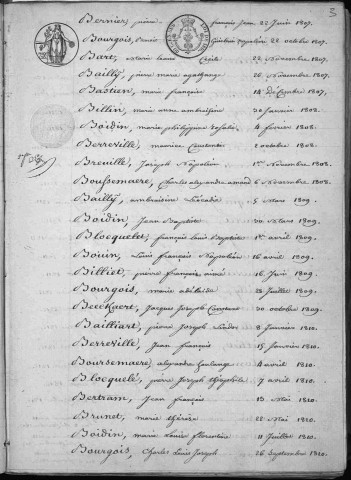 5
Bernier, pierre françois Jean 22 Juin 1807.
Bourgois, Benoit napoléon 22 octobre 1807.
Bart, marie Cécile 22 Novembre 1807.
Bailly, pierre marie agathange 26 Novembre 1807.
Bastien, marie françoise 14 Décembre 1807.
Billin, marie anne ambroisine 30 Janvier 1808.
Boidin, marie philippine rosalie 4 février 1808.
Berreville, maurice Constantin 2 octobre 1808.
Breuille, Joseph Napoléon 1er Novembre 1808.
Boussemaere, Charles alexandre armand 6 Novembre 1808.
Bailly, ambroisine Léocadie 5 Mars 1809.
Boidin, Jean Baptiste 30 Mars 1809.
Blocquelet, françois Louis Baptiste 1er avril 1809.
Bouin, Louis françois Napoléon 16 avril 1809.
Billiet, pierre françois aimé 16 Juin 1809.
Bourgois, marie adélaïde 28 Juillet 1809.
Beeckaert, Jacques Joseph Constant 30 octobre 1809.
Bailliart, pierre Joseph 8 Janvier 1810.
Berreville, Jean françois 15 Janvier 1810.
Boursemaere, alexandre 4 avril 1810.
Blocquelé, pierre Joseph théophile 7 avril 1810.
Bertram, Jean françois 13 Mai 1810.
Brunet, marie thérèse 22 Mai 1810.
Boidin, marie Louise florentine 11 Juillet 1810.
Bourgois, Charles Louis Joseph 26 Septembre 1810.